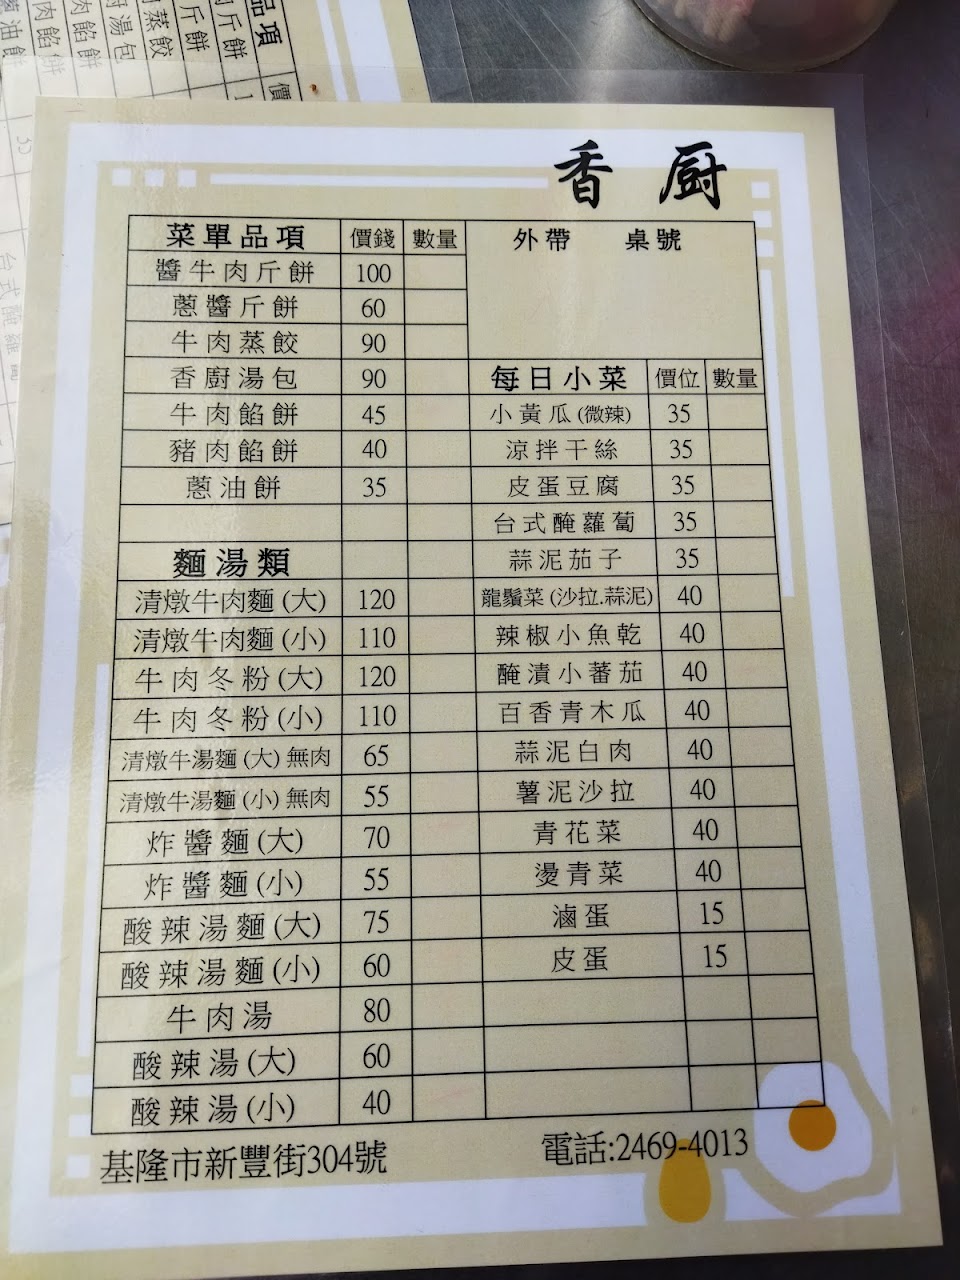 香廚
菜單品項 價錢 數量
醬牛肉斤餅 100
蔥醬斤餅 60
牛肉蒸餃 90
香廚湯包 90
牛肉餡餅 45
豬肉餡餅 40
蔥油餅 35
麵湯類
清燉牛肉麵(大) 120
清燉牛肉麵(小) 110
牛肉冬粉(大) 120
牛肉冬粉(小) 110
清燉牛湯麵(大)無肉 65
清燉牛湯麵(小)無肉 55
炸醬麵(大) 70
炸醬麵(小) 55
酸辣湯麵(大) 75
酸辣湯麵(小) 60
牛肉湯 80
酸辣湯(大) 60
酸辣湯(小) 40
外帶 桌號
每日小菜 價位 數量
小黃瓜(微辣) 35
涼拌干絲 35
皮蛋豆腐 35
台式醃蘿蔔 35
蒜泥茄子 35
龍鬚菜(沙拉.蒜泥) 40
辣椒小魚乾 40
醃漬小蕃茄 40
百香青木瓜 40
蒜泥白肉 40
薯泥沙拉 40
青花菜 40
燙青菜 40
滷蛋 15
皮蛋 15
基隆市新豐街304號
電話:2469-4013
品項
肉斤餅
斤餅
蒸餃
湯包
肉餡餅
蔥油餅